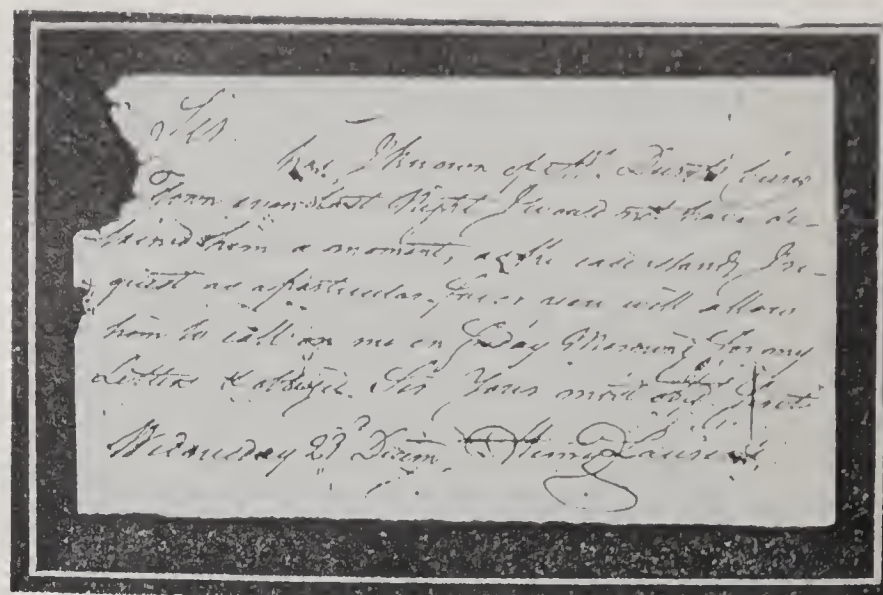 Sir
had I known of Mr. being
down even last Night I would not have de-
tained them a moment, as the case stands, I re-
quest as a particular favor you will allow
him to call on me on Friday Morning for my
Letters & oblige Sir Your most obed. Servt.
Wednesday 23d Decem. Henry Laurens